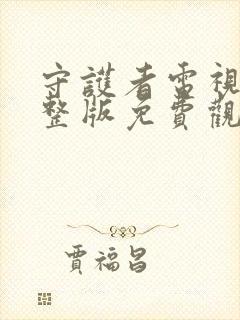 守護者電視
整版免費觀
賈福昌